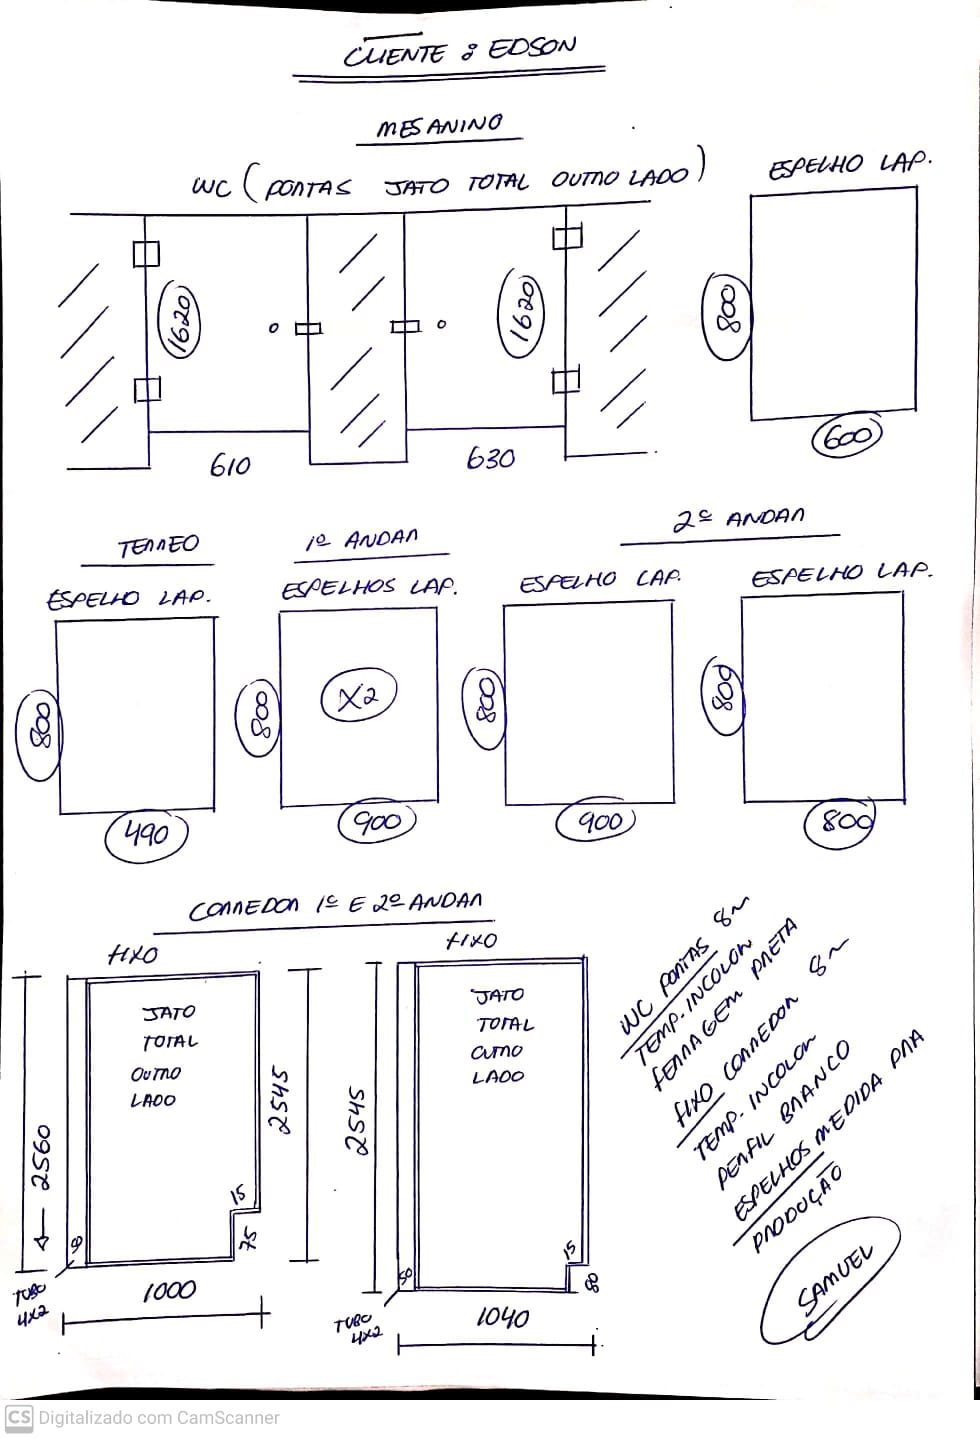 CLIENTE : EDSON
MESANINO
WC ( PORTAS JATO TOTAL OUTRO LADO )
ESPELHO LAP.
1620
1620
800
610
630
600
TERREO
1º ANDAR
2º ANDAR
ESPELHO LAP.
ESPELHOS LAP.
ESPELHO LAP.
ESPELHO LAP.
800
800
X2
800
800
490
900
900
800
CORREDOR 1º E 2º ANDAR
FIXO
FIXO
JATO
TOTAL
OUTRO
LADO
JATO
TOTAL
OUTRO
LADO
2560
2545
2545
15
75
15
80
50
1000
1040
TUBO
4X2
TUBO
4X2
WC PORTAS 8m
TEMP. INCOLOR
FERRAGEM PRETA
FIXO CORREDOR 8m
TEMP. INCOLOR
PERFIL BRANCO
ESPELHOS MEDIDA PRA
PRODUÇÃO
SAMUEL
CS Digitalizado com CamScanner